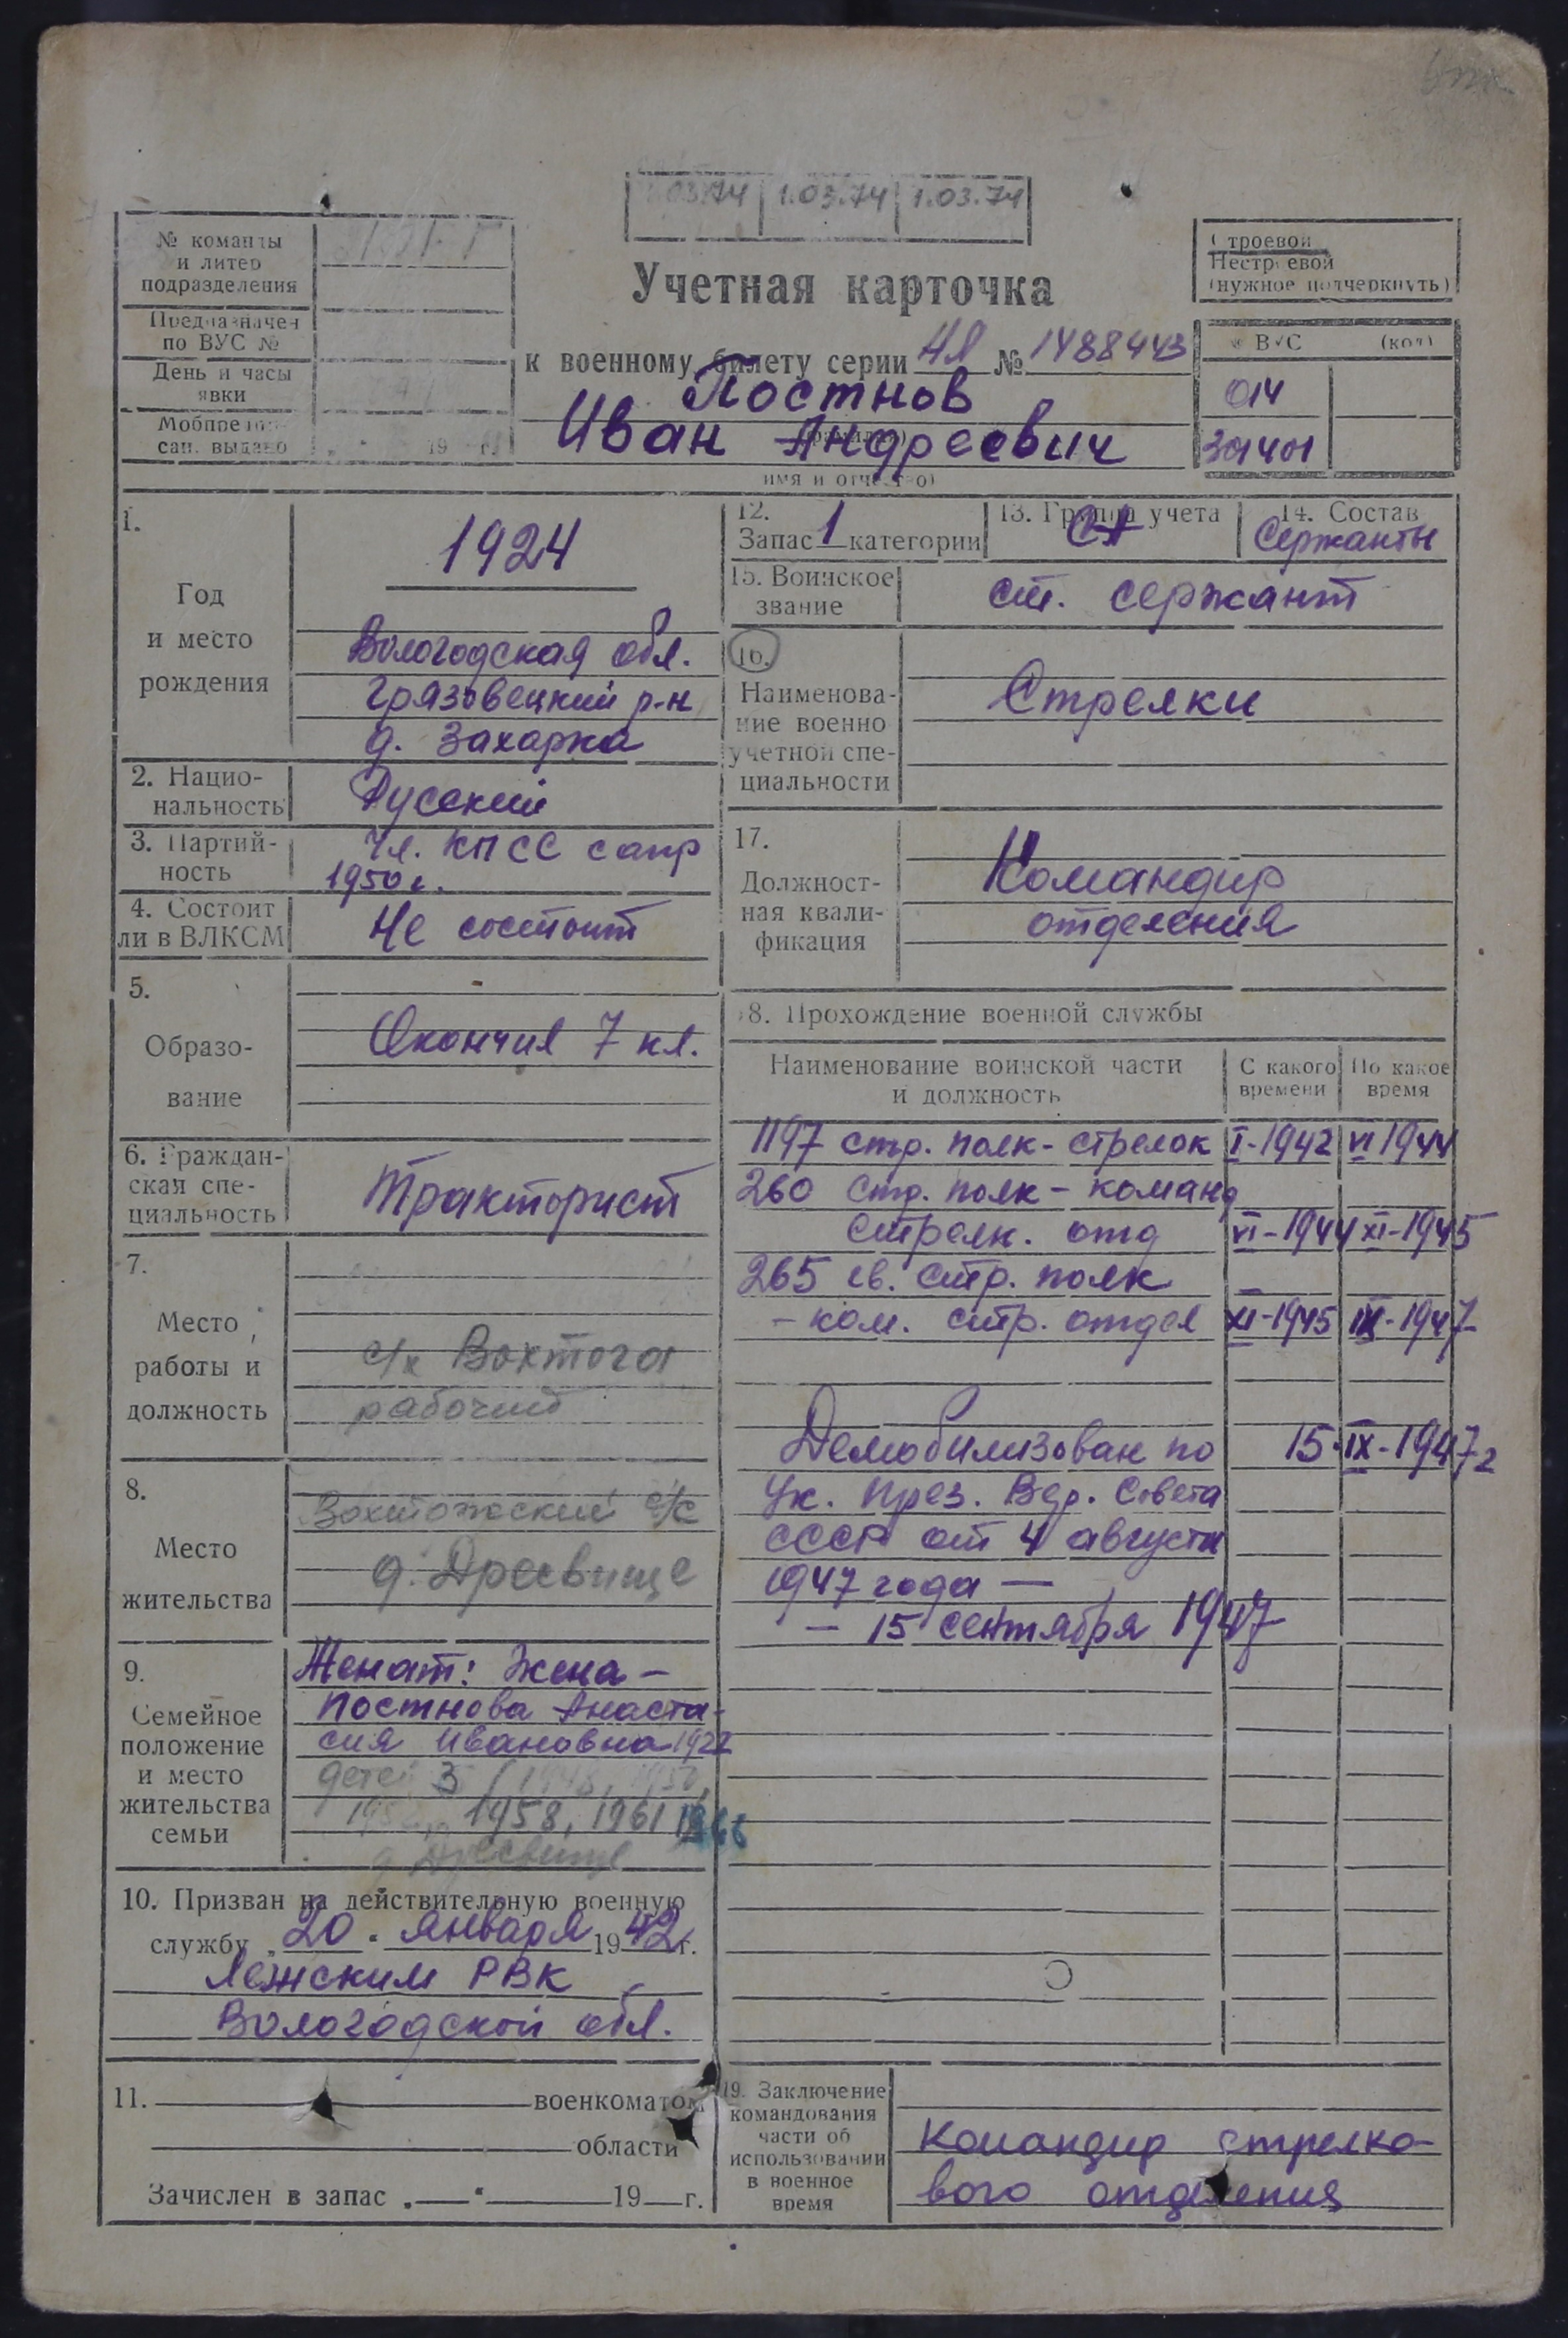 1.03.74 1.03.74
№ команды
и литер
подразделения
Предназначен
по ВУС №
День и часы
явки
Мобпредпи-
сан. выдано
19 г.
Учетная карточка
к военному билету серии НЛ № 1488443
Постнов
Иван Андреевич
имя и отчество)
Строевой
Нестроевой
(нужное подчеркнуть)
№ ВУС (код)
014
301401
1.
Год
и место
рождения
1924
Вологодская обл.
Грязовецкий р-н
д. Захарка
2. Нацио-
нальность
Русский
3. Партий-
ность
Чл. КПСС с апр
1950 г.
4. Состоит
ли в ВЛКСМ
Не состоит
5.
Образо-
вание
Окончил 7 кл.
6. Граждан-
ская спе-
циальность
Тракторист
7.
Место
работы и
должность
с/х Вохтога
рабочий
8.
Место
жительства
Вохтожский с/с
д. Дресвище
9.
Семейное
положение
и место
жительства
семьи
Женат: Жена –
Постнова Анаста-
сия Ивановна 1922
детей 3 (1948, 1950,
1958, 1961 1966
д Дресвище
10. Призван на действительную военную
службу „20" января 1942 г.
Лежским РВК
Вологодской обл.
11. военкоматом
области
Зачислен в запас „ — " 19 г.
12.
Запас 1 категории
13. Группа учета
СА
14. Состав
Сержанты
15. Воинское
звание
ст. сержант
16.
Наименова-
ние военно
учетной спе-
циальности
Стрелки
17.
Должност-
ная квали-
фикация
Командир
отделения
18. Прохождение военной службы
Наименование воинской части
и должность
С какого
времени
По какое
время
1197 стр. полк - стрелок I-1942 VI 1944
260 стр. полк - команд
стрелк. отд VI-1944 XI-1945
265 гв. стр. полк
- ком. стр. отдел XI-1945 IX-1947
Демобилизован по 15.IX-1947 г
Ук. През. Вер. Совета
СССР от 4 августа
1947 года —
– 15 сентября 1947
19. Заключение
командования
части об
использовании
в военное
время
Командир стрелко-
вого отделения